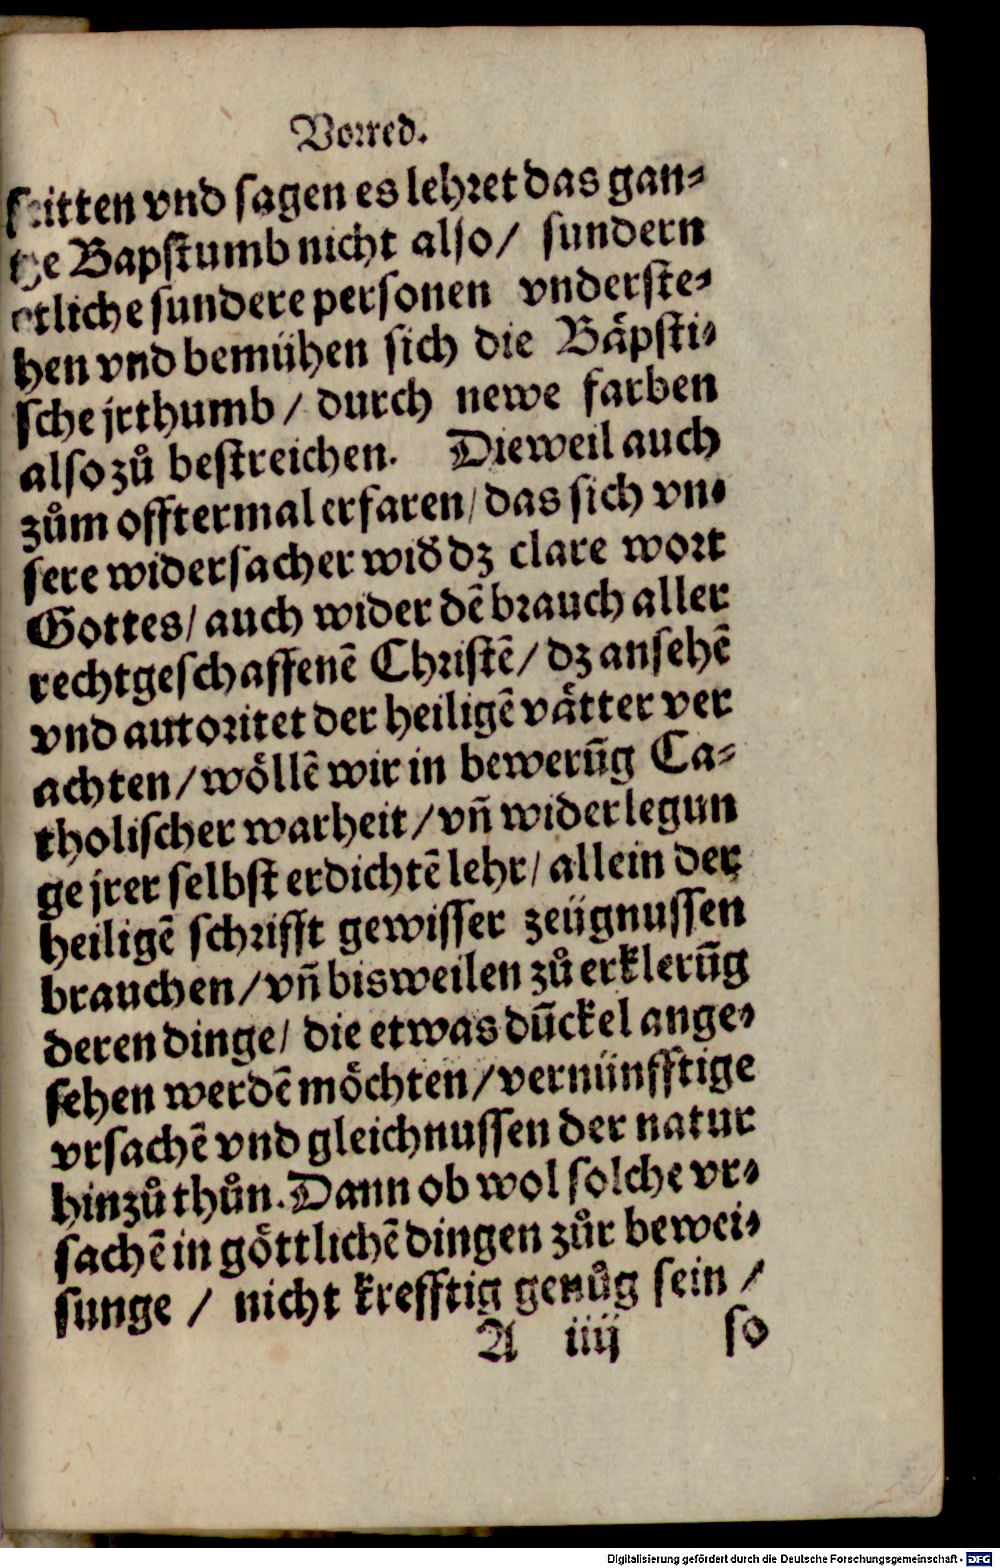 Vorred.
ſtritten vnd ſagen es lehret das gan⸗
tze Bapſtumb nicht alſo/ ſundern
etliche ſundere perſonen vnderſte⸗
hen vnd bemühen ſich die Bäpſti⸗
ſche jrthumb / durch newe farben
alſo zů beſtreichen. Dieweil auch
zům offtermal erfaren/ das ſich vn⸗
ſere widerſacher wid᷑ dz clare wort
Gottes/ auch wider dē brauch aller
rechtgeſchaffenē Chriſtē/ dz anſehē
vnd autoritet der heiligē vätter ver
achten/ wöllē wir in bewerūg Ca⸗
tholiſcher warheit/ vñ widerlegun
ge jrer ſelbſt erdichtē lehr/ allein der
heiligē ſchrifft gewiſſer zeügnuſſen
brauchen/ vñ bisweilen zů erklerūg
deren dinge/ die etwas dūckel ange⸗
ſehen werdē möchten/ vernünfftige
vrſachē vnd gleichnuſſen der natur
hinzů thůn. Dann ob wol ſolche vr⸗
ſachē in göttlichē dingen zůr bewei⸗
ſunge / nicht krefftig genůg ſein /
A iiij ſo
Digitalisierung gefördert durch die Deutsche Forschungsgemeinschaft - DFG